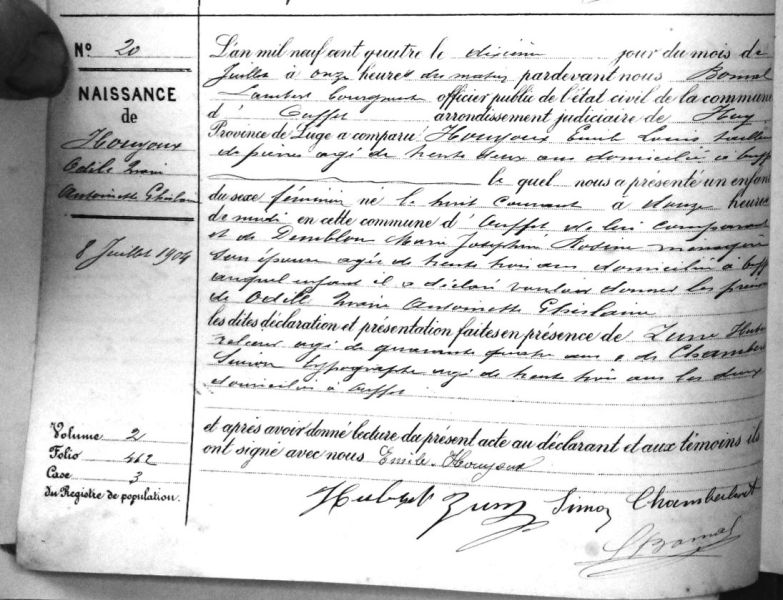 N° 20
NAISSANCE
de
Houyoux
Odile Marie
Antoinette Ghislaine
8 Juillet 1904
Volume 2
Folio 462
Case 3
du Registre de population.
L'an mil neuf cent quatre le dixième jour du mois de
Juillet à onze heures du matin pardevant nous Bomal
Lambert officier public de l'état civil de la commune
d' Ouffet arrondissement judiciaire de Huy
Province de Liége a comparu Houyoux Emile Louis tailleur
de pierres agé de trente deux ans domicilié à Ouffet
le quel nous a présenté un enfant
du sexe féminin né le huit courant à douze heures
de midi en cette commune d' Ouffet, de lui comparant
et de Demblon Marie Joséphine Rosine ménagère
son épouse agée de trente trois ans domiciliée à Ouffet
auquel enfant il a déclaré vouloir donner les prénoms
de Odile Marie Antoinette Ghislaine
les dites déclaration et présentation faites en présence de Zune Hubert
agé de quarante quatre ans & de Chambe
Simon typographe agé de trente trois ans les deux
domiciliés à Ouffet.
et après avoir donné lecture du présent acte au déclarant et aux témoins ils
ont signé avec nous Emile Houyoux
Hubert Zune Simon
L Bomal